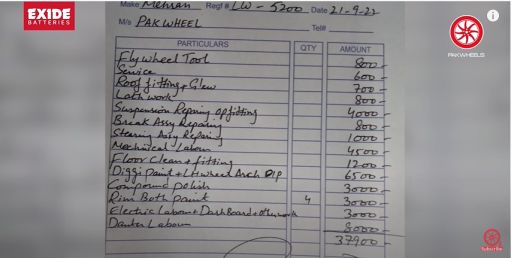 EXIDE
BATTERIES
Make Mehran Regf # LW - 5200 Date 21-9-22
M/s PAKWHEEL Tel#
PAKWHEELS
PARTICULARS QTY AMOUNT
Flywheel Tool 800-
Service 600-
Roof fitting + Glew 700-
Lath work 800-
Suspension Repairing op fitting 4000-
Break Assy Repairing 800-
Stearing Assy Repairing 1000-
Mechnical Labour 4500-
Floor Clean + fitting 1200-
Diggi Paint + L+wheel Arch D/P 6500-
Compound polish 3000-
Rim Both paint 4 3000-
Electric Labour + DashBoard + other work 3000-
Danter Labour 8000-
37900-
Subscribe